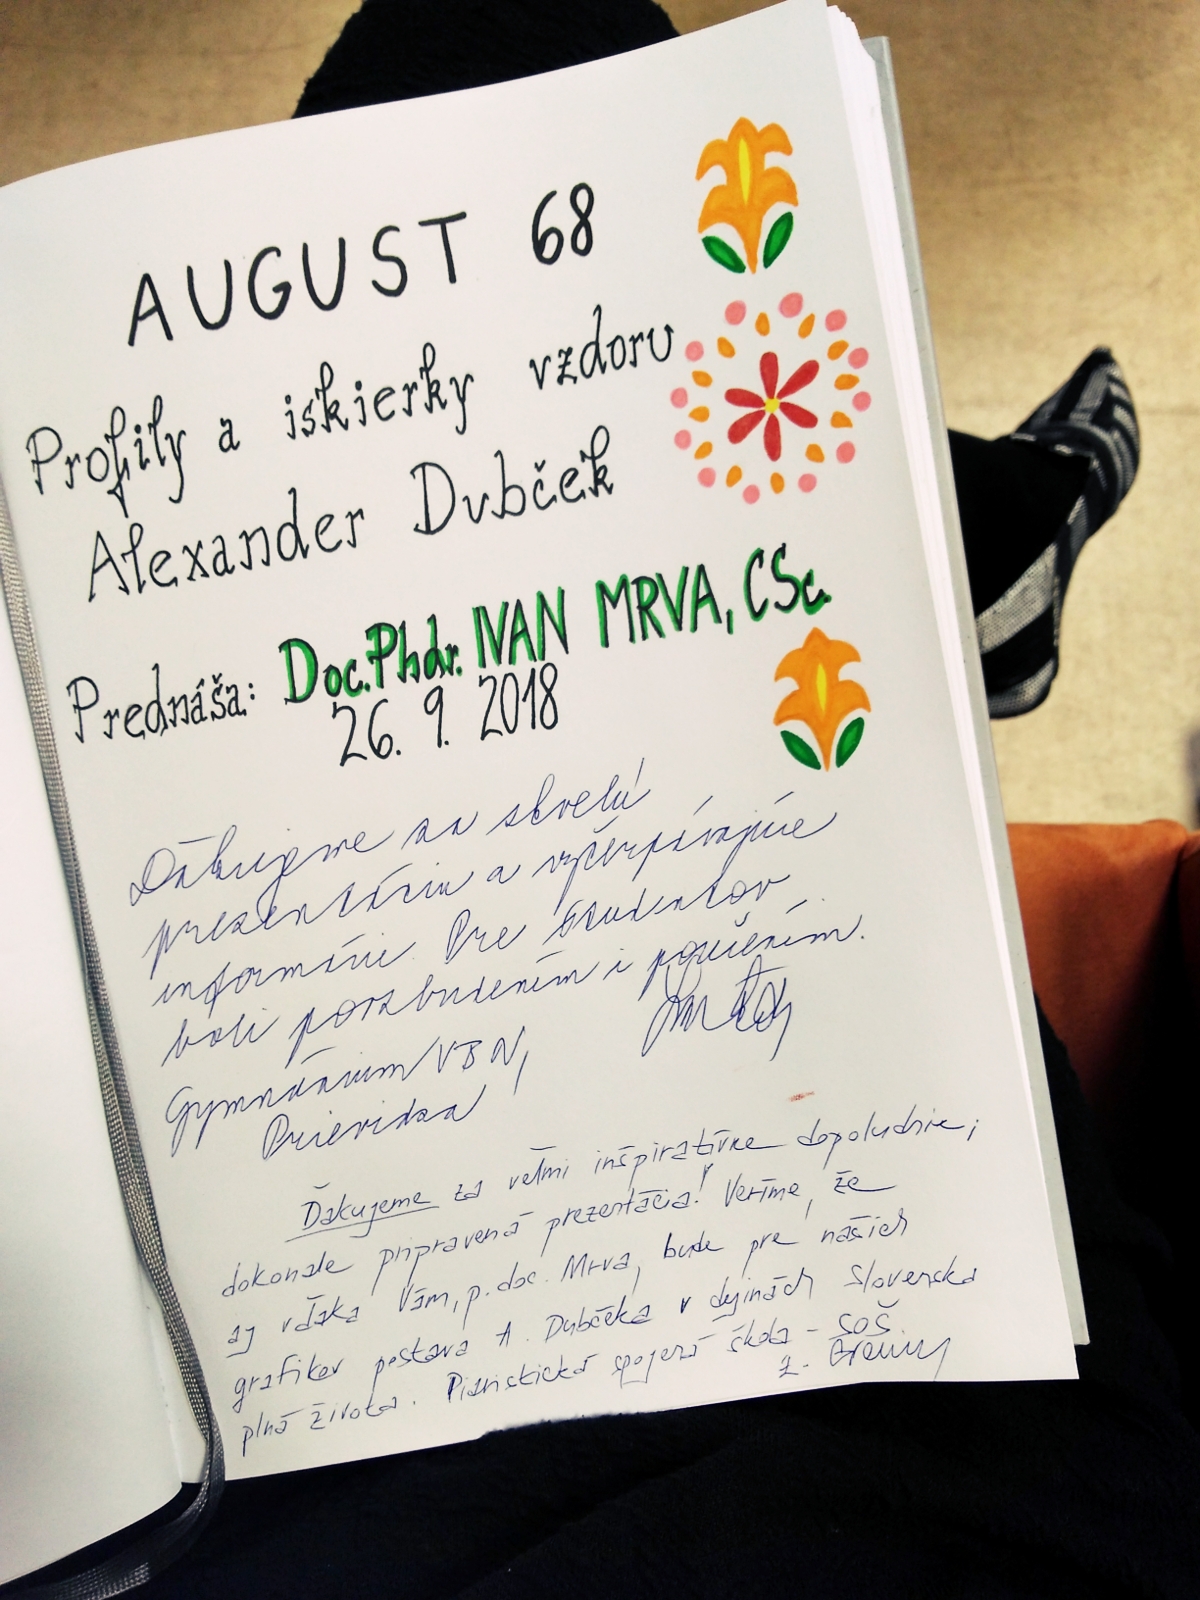 AUGUST 68
Profily a iskierky vzdoru
Alexander Dubček
Prednáša: Doc.Phdr. IVAN MRVA, CSc.
26. 9. 2018
Ďakujeme za skvelú
prezentáciu a vyčerpávajúce
informácie. Pre študentov
boli povzbudením i poučením.
Gymnázium VBN,
Prievidza
Ďakujeme za veľmi inšpiratívne dopoludnie,
dokonale pripravená prezentácia! Veríme, že
aj vďaka Vám, p. doc. Mrva, bude pre našich
grafikov postava A. Dubčeka v dejinách Slovenska
plná života. Piaristická spojená škola - SOŠ